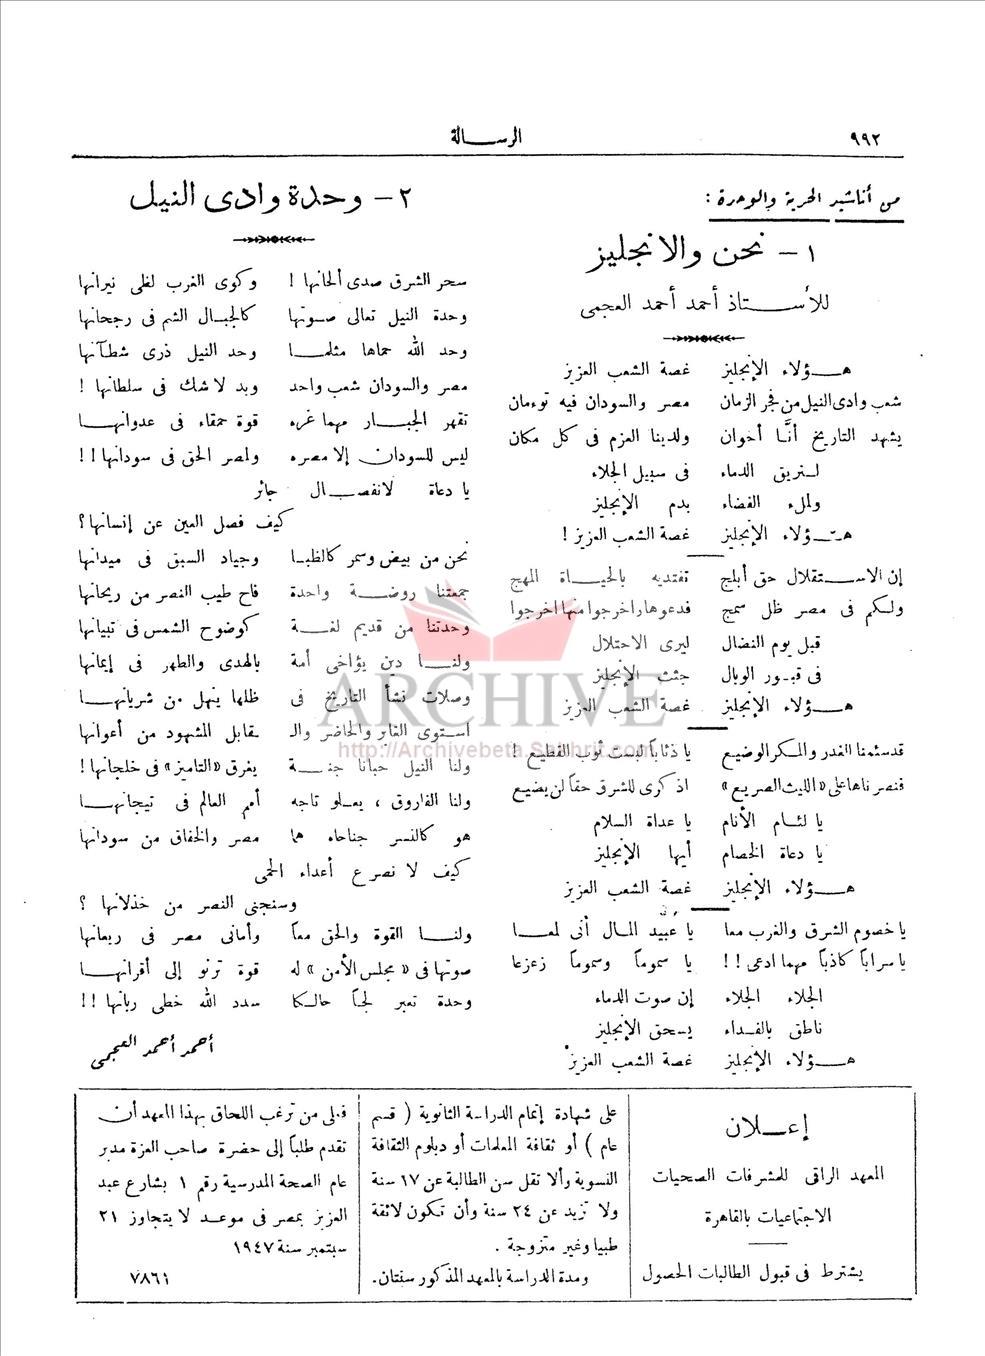 ٩٩٢
الرســالة
من أناشيد الحرية والوحدة :
١ - نحن والانجليز
للأستاذ أحمد أحمد العجمى
هــؤلاء الإنجليز غصة الشعب العزيز
شعب وادى النيل من فجر الزمان مصر والسودان فيه توءمان
يشهد التاريخ أنَّا أخوان ولدينا العزم فى كل مكان
لــنريق الدماء فى سبيل الجلاء
ولملء الفضاء بدم الإنجليز
هــؤلاء الإنجليز غصة الشعب العزيز !
إن الاستقلال حق أبلج تفتديه بالحياة المهج
ولكم فى مصر ظل سمج فدعوها واخرجوا منها اخرجوا
قبل يوم النضال ليرى الاحتلال
فى قبور الوبال جثث الإنجليز
هــؤلاء الإنجليز غصة الشعب العزيز
قد سئمنا الغدر والمكر الوضيع يا ذئاباً ألبست ثوب القطيع !
فنصرناها على « الليث الصريع » اذكرى للشرق حقاً لن يضيع
يا لئــام الأنام يا عداة السلام
يا دعاة الخصام أيها الإنجليز
هــؤلاء الإنجليز غصة الشعب العزيز
يا خصوم الشرق والغرب معا يا عبيد المال أنى لمعــا
يا سراباً كاذباً مهما ادعى !! يا سموماً وسموماً زعزعا
الجلاء الجلاء إن صوت الدماء
ناطق بالفــداء يسحق الإنجليز
هــؤلاء الإنجليز غصة الشعب العزيز
٢ - وحدة وادى النيل
سحر الشرق صدى ألحانها ! وكوى الغرب لظى نيرانها
وحدة النيل تعالى صــوتها كالجبــال الشم فى رجحانها
وحد الله حماها مثلمــا وحد النيل ذرى شطآنها
مصر والسودان شعب واحد ويد لا شك فى سلطانها !
تقهر الجبــار مهما غره قوة حمقاء فى عدوانهــا
ليس للسودان إلا مصره ولمصر الحق فى سودانها !!
يا دعاة لانفصــال جائر
كيف فصل العين عن إنسانها ؟
نحن من بيض وسمر كالظبــا وجياد السبق فى ميدانها
جمعتنا روضــة واحدة فاح طيب النصر من ريحانها
وحدتنا من قديم لغــة كوضوح الشمس فى تبيانها
ولنــا دين يؤاخى أمة بالهدى والطهر فى إيمانها
وصلات نشأ التاريخ فى ظلها ينهل من شريانهــا
استوى الغابر والحاضر والـ ـقابل المشهود من أعوانها
ولنا النيل حبانا جنــة يغرق « التاميز » فى خلجانها !
ولنا الفاروق ، يعــلو تاجه أمم العالم فى تيجانهــا
هو كالنسر جناحاه هما مصر والخفاق من سودانها
كيف لا نصرع أعداء الحمى
وسنجنى النصر من خذلانها ؟
ولنــا القوة والحق معاً وأمانى مصر فى ريعانها
صوتها فى « مجلس الأمن » له قوة ترنو إلى أقرانهــا
وحدة تعبر لجاً حالــكا سدد الله خطى ربانها !!
أحمد أحمد العجمى
إعــلان
المعهد الراقى للمشرفات الصحيات
الاجتماعيات بالقاهرة
يشترط فى قبول الطالبات الحصول
على شهادة إتمام الدراسة الثانوية ( قسم
عام ) أو ثقافة المعلمات أو دبلوم الثقافة
النسوية وألا تقل سن الطالبة عن ١٧ سنة
ولا تزيد عن ٢٤ سنة وأن تكون لائقة
طبيا وغير متزوجة .
ومدة الدراسة بالمعهد المذكور سنتان .
فعلى من ترغب اللحاق بهذا المعهد أن
تقدم طلباً إلى حضرة صاحب العزة مدير
عام الصحة المدرسية رقم ١ بشارع عبد
العزيز بمصر فى موعــد لا يتجاوز ٢١
سبتمبر سنة ١٩٤٧
٧٨٦١
ARCHIVE
http://Archivebeta.Sakhrit.com